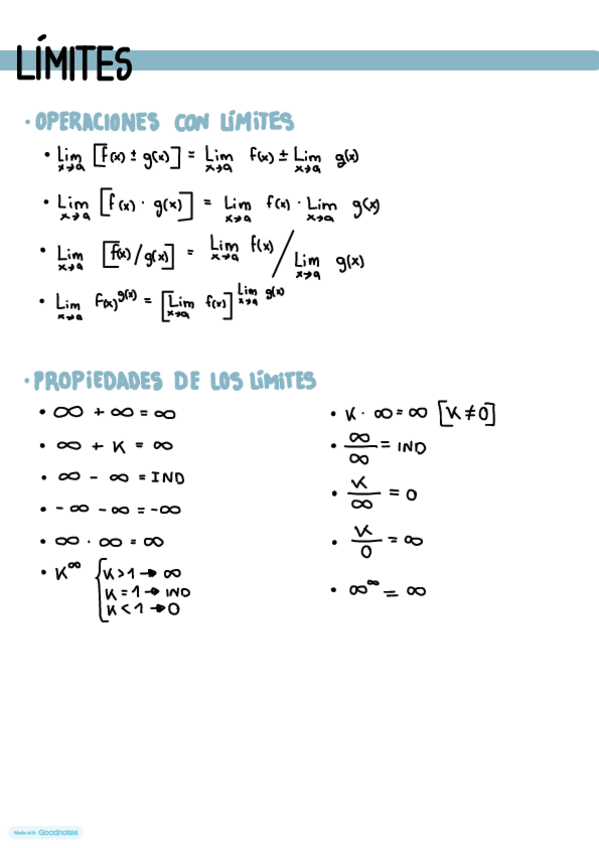 LÍMITES
• OPERACIONES CON LÍMITES
• Lim x→a [f(x) ± g(x)] = Lim x→a f(x) ± Lim x→a g(x)
• Lim x→a [f(x) · g(x)] = Lim x→a f(x) · Lim x→a g(x)
• Lim x→a [f(x)/g(x)] = Lim x→a f(x) / Lim x→a g(x)
• Lim x→a F(x)^g(x) = [Lim x→a f(x)]^Lim x→a g(x)
• PROPIEDADES DE LOS LÍMITES
• ∞ + ∞ = ∞
• ∞ + K = ∞
• ∞ - ∞ = IND
• -∞ -∞ = -∞
• ∞ · ∞ = ∞
• K^∞ { K > 1 → ∞
K = 1 → IND
K < 1 → 0
• K · ∞ = ∞ [K ≠ 0]
• ∞/∞ = IND
• K/∞ = 0
• K/0 = ∞
• ∞^∞ = ∞
Made with Goodnotes